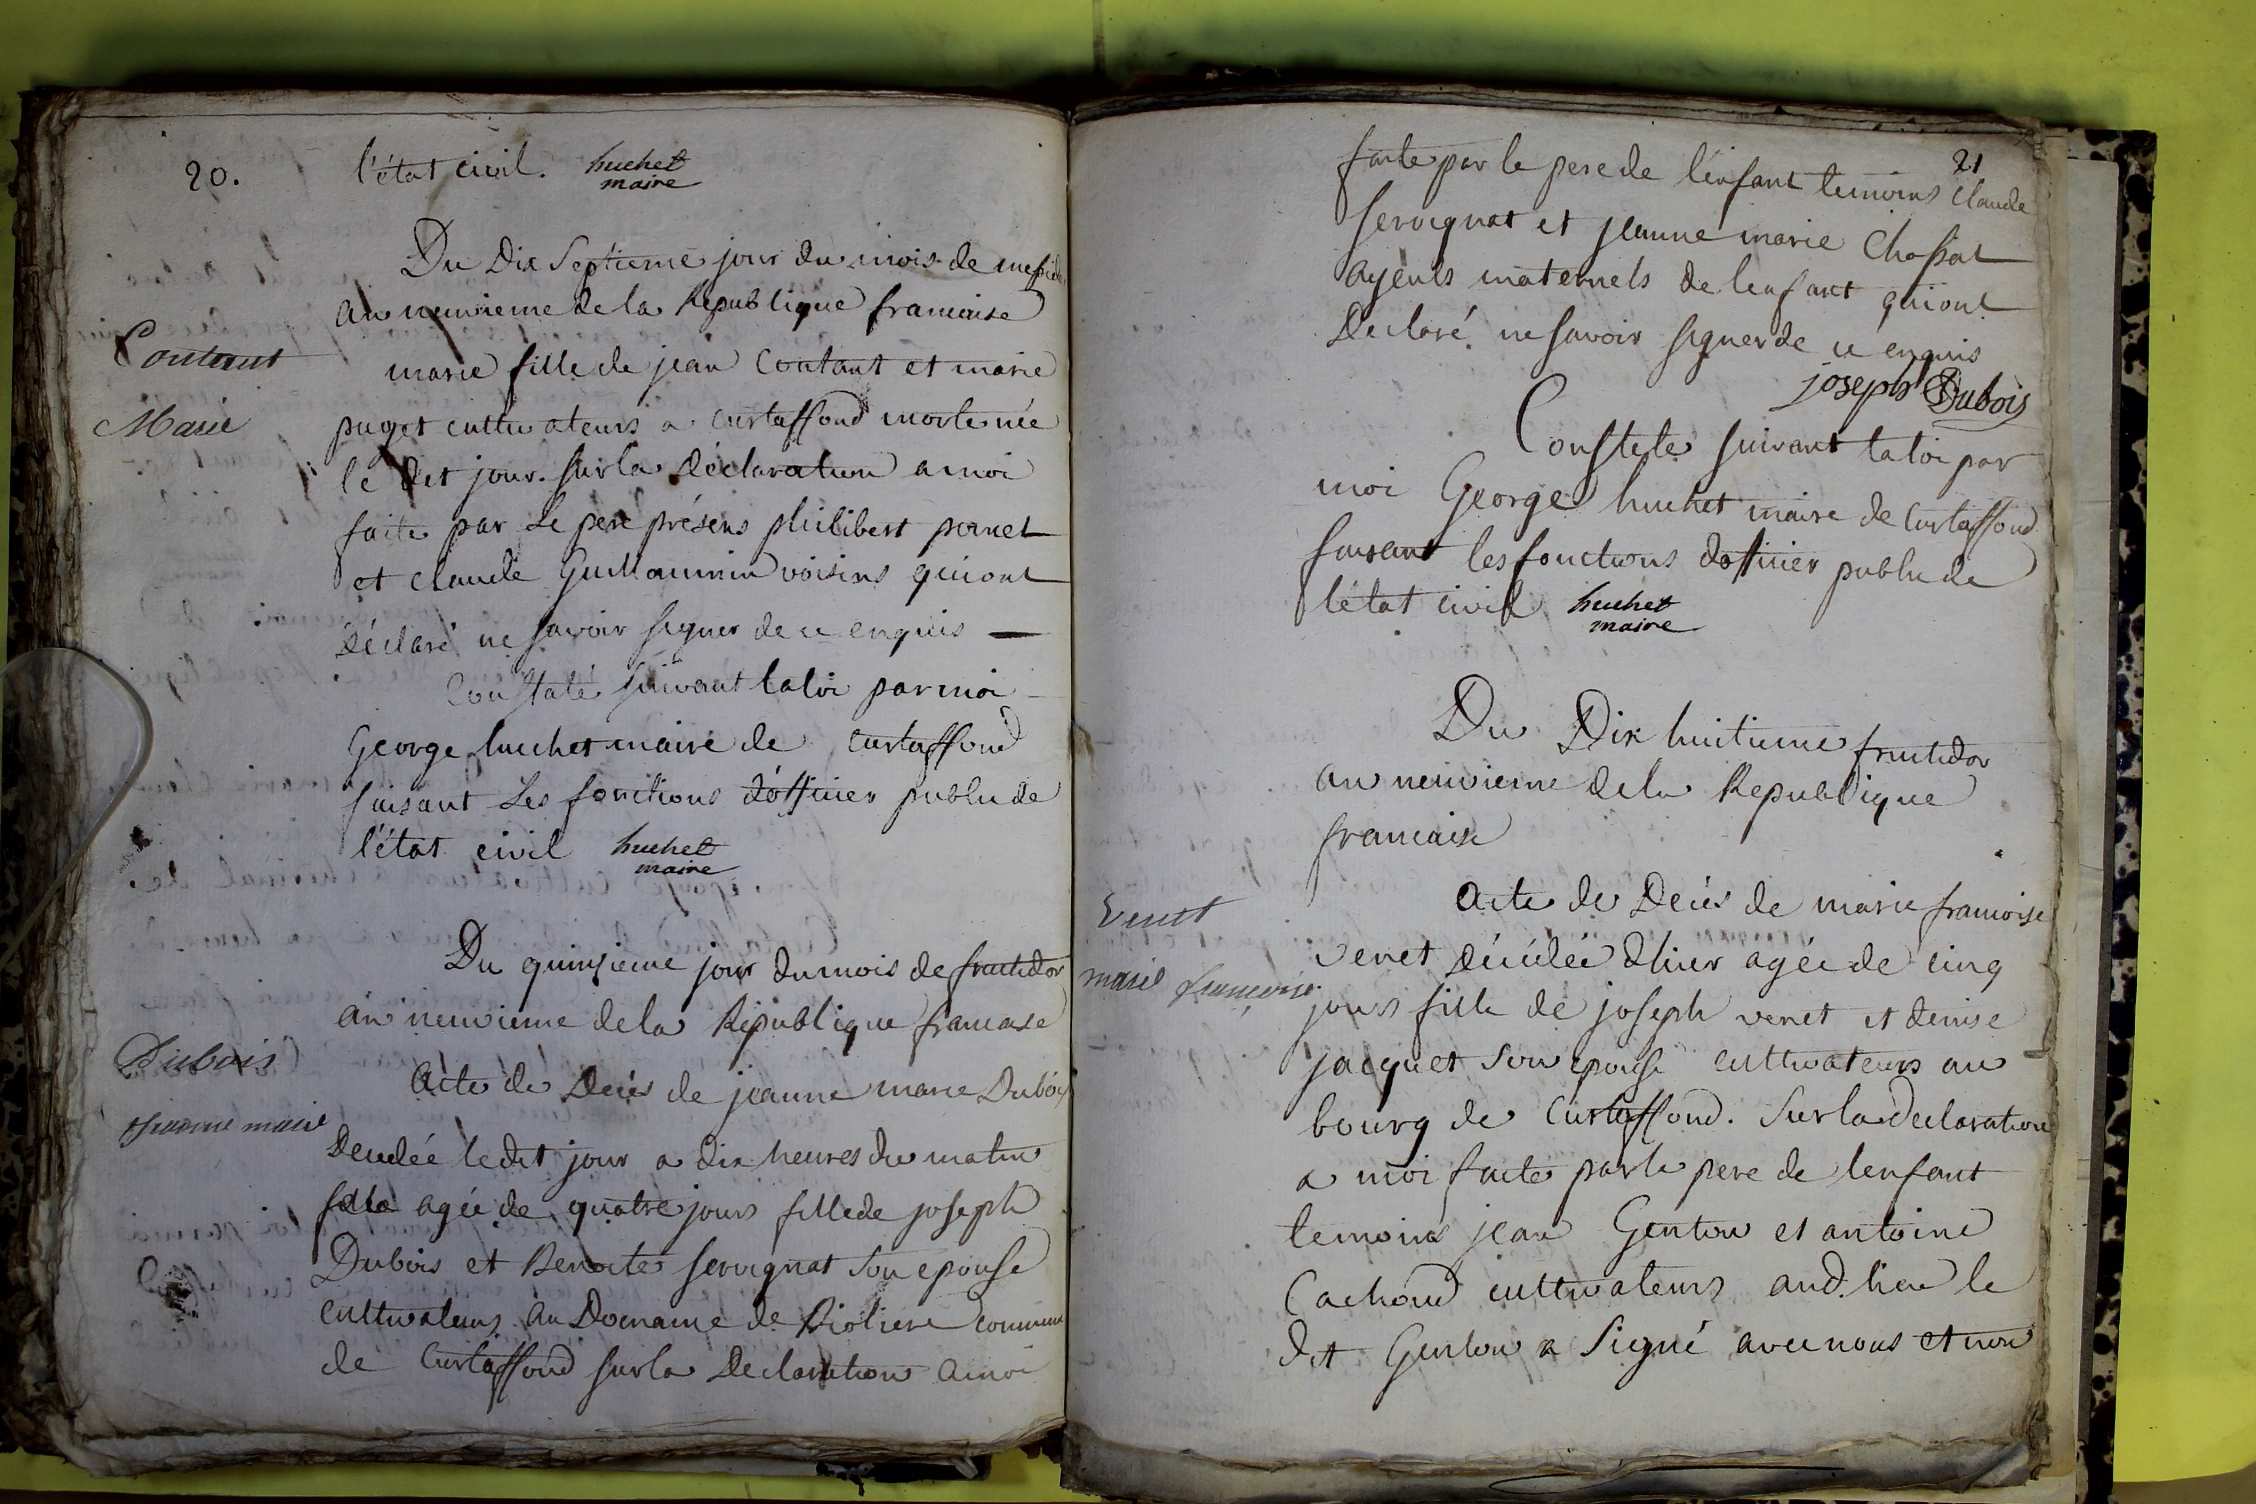 20.
l'état civil. huchet
maire
Du Dix Septieme jour du mois de messidor
an neuvieme de la Republique francaise
Contant
Marie
marie fille de jean Contant et marie
puget cultivateurs a curtaffond morte née
le dit jour. sur la déclaration a moi
faite par Le pere présens philibert pernet
et claude Guillaumin voisins qui ont
déclaré ne savoir signer de ce enquis —
Constaté suivant la loi par moi
George huchet maire de curtaffond
faisant Les fonctions d'officier public de
l'état civil huchet
maire
Du quinzieme jour du mois de fructidor
an neuvieme de la Republique francaise
Dubois
jeanne marie
Acte de Decès de jeanne marie Dubois
Decedée le dit jour a dix heures du matin
fille agée de quatre jours fille de joseph
Dubois et Benoite servignat son epouse
cultivateurs au Domaine de Riotiere commune
de Curtaffond sur la Declaration a moi
21
faite par le pere de l'enfant temoins Claude
servignat et jeanne marie Chassat
ayeuls maternels de lenfant qui ont
Declaré ne savoir signer de ce enquis
joseph Dubois
Constaté suivant la loi par
moi George huchet maire de Curtaffond
faisant les fonctions dofficier public de
l'état civil huchet
maire
Du Dix huitieme fructidor
an neuvieme de la Republique
francaise
Venet
marie françoise
Acte de Decès de marie francoise
venet décédée d'hier agée de cinq
jours fille de joseph venet et denise
jacquet son epouse cultivateurs au
bourg de Curtaffond. sur la declaration
a moi faite par le pere de lenfant
temoins jean Genton et antoine
Cachoud cultivateurs aud. lieu le
dit Genton a signé avec nous et non